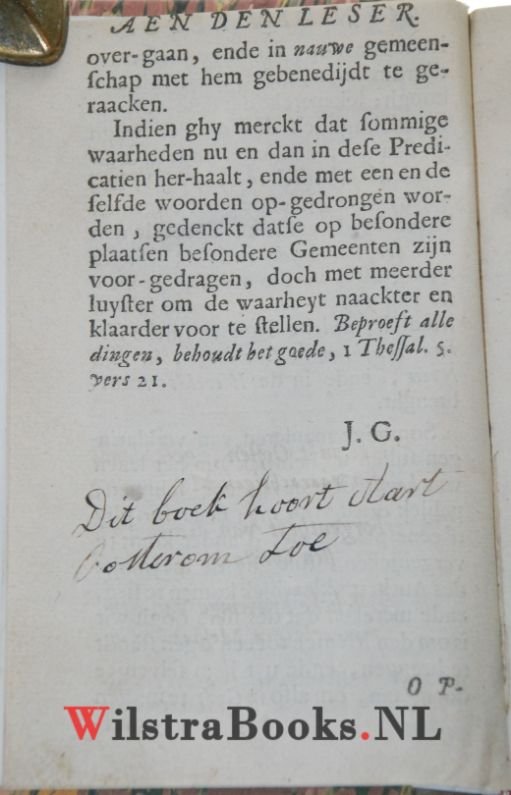 AEN DEN LESER.
over-gaan, ende in nauwe gemeen-
schap met hem gebenedijdt te ge-
raacken.
Indien ghy merckt dat sommige
waarheden nu en dan in dese Predi-
catien her-haalt, ende met een en de
selfde woorden op-gedrongen wor-
den, gedenckt datse op besondere
plaatsen besondere Gemeenten zijn
voor-gedragen, doch met meerder
luyster om de waarheyt naackter en
klaarder voor te stellen. Beproeft alle
dingen, behoudt het goede, 1 Thessal. 5.
vers 21.
J. G.
Dit boek hoort Aart
Oosterom Toe
O P-
WilstraBooks.NL